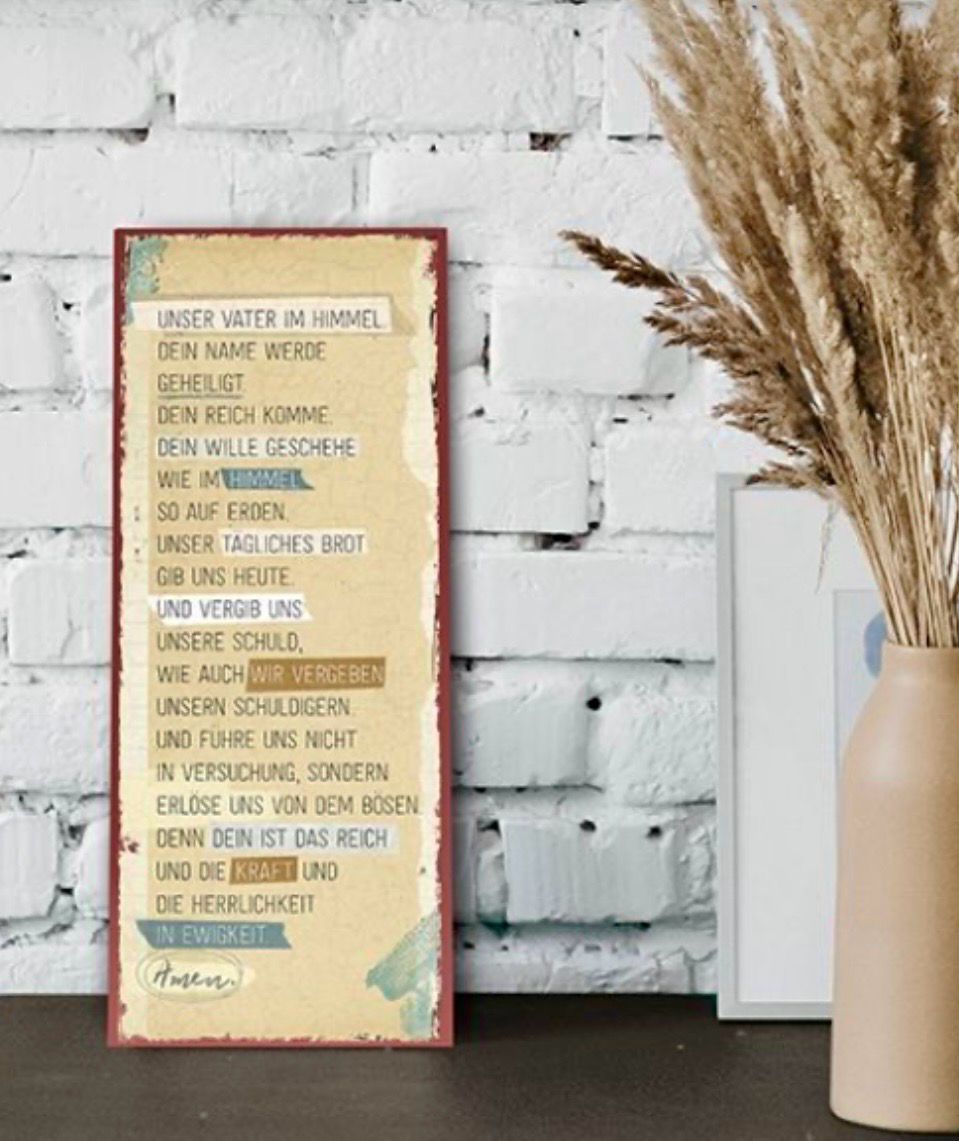 UNSER VATER IM HIMMEL
DEIN NAME WERDE
GEHEILIGT.
DEIN REICH KOMME.
DEIN WILLE GESCHEHE
WIE IM HIMMEL
SO AUF ERDEN.
UNSER TÄGLICHES BROT
GIB UNS HEUTE.
UND VERGIB UNS
UNSERE SCHULD,
WIE AUCH WIR VERGEBEN
UNSERN SCHULDIGERN.
UND FÜHRE UNS NICHT
IN VERSUCHUNG, SONDERN
ERLÖSE UNS VON DEM BÖSEN.
DENN DEIN IST DAS REICH
UND DIE KRAFT UND
DIE HERRLICHKEIT
IN EWIGKEIT.
Amen.